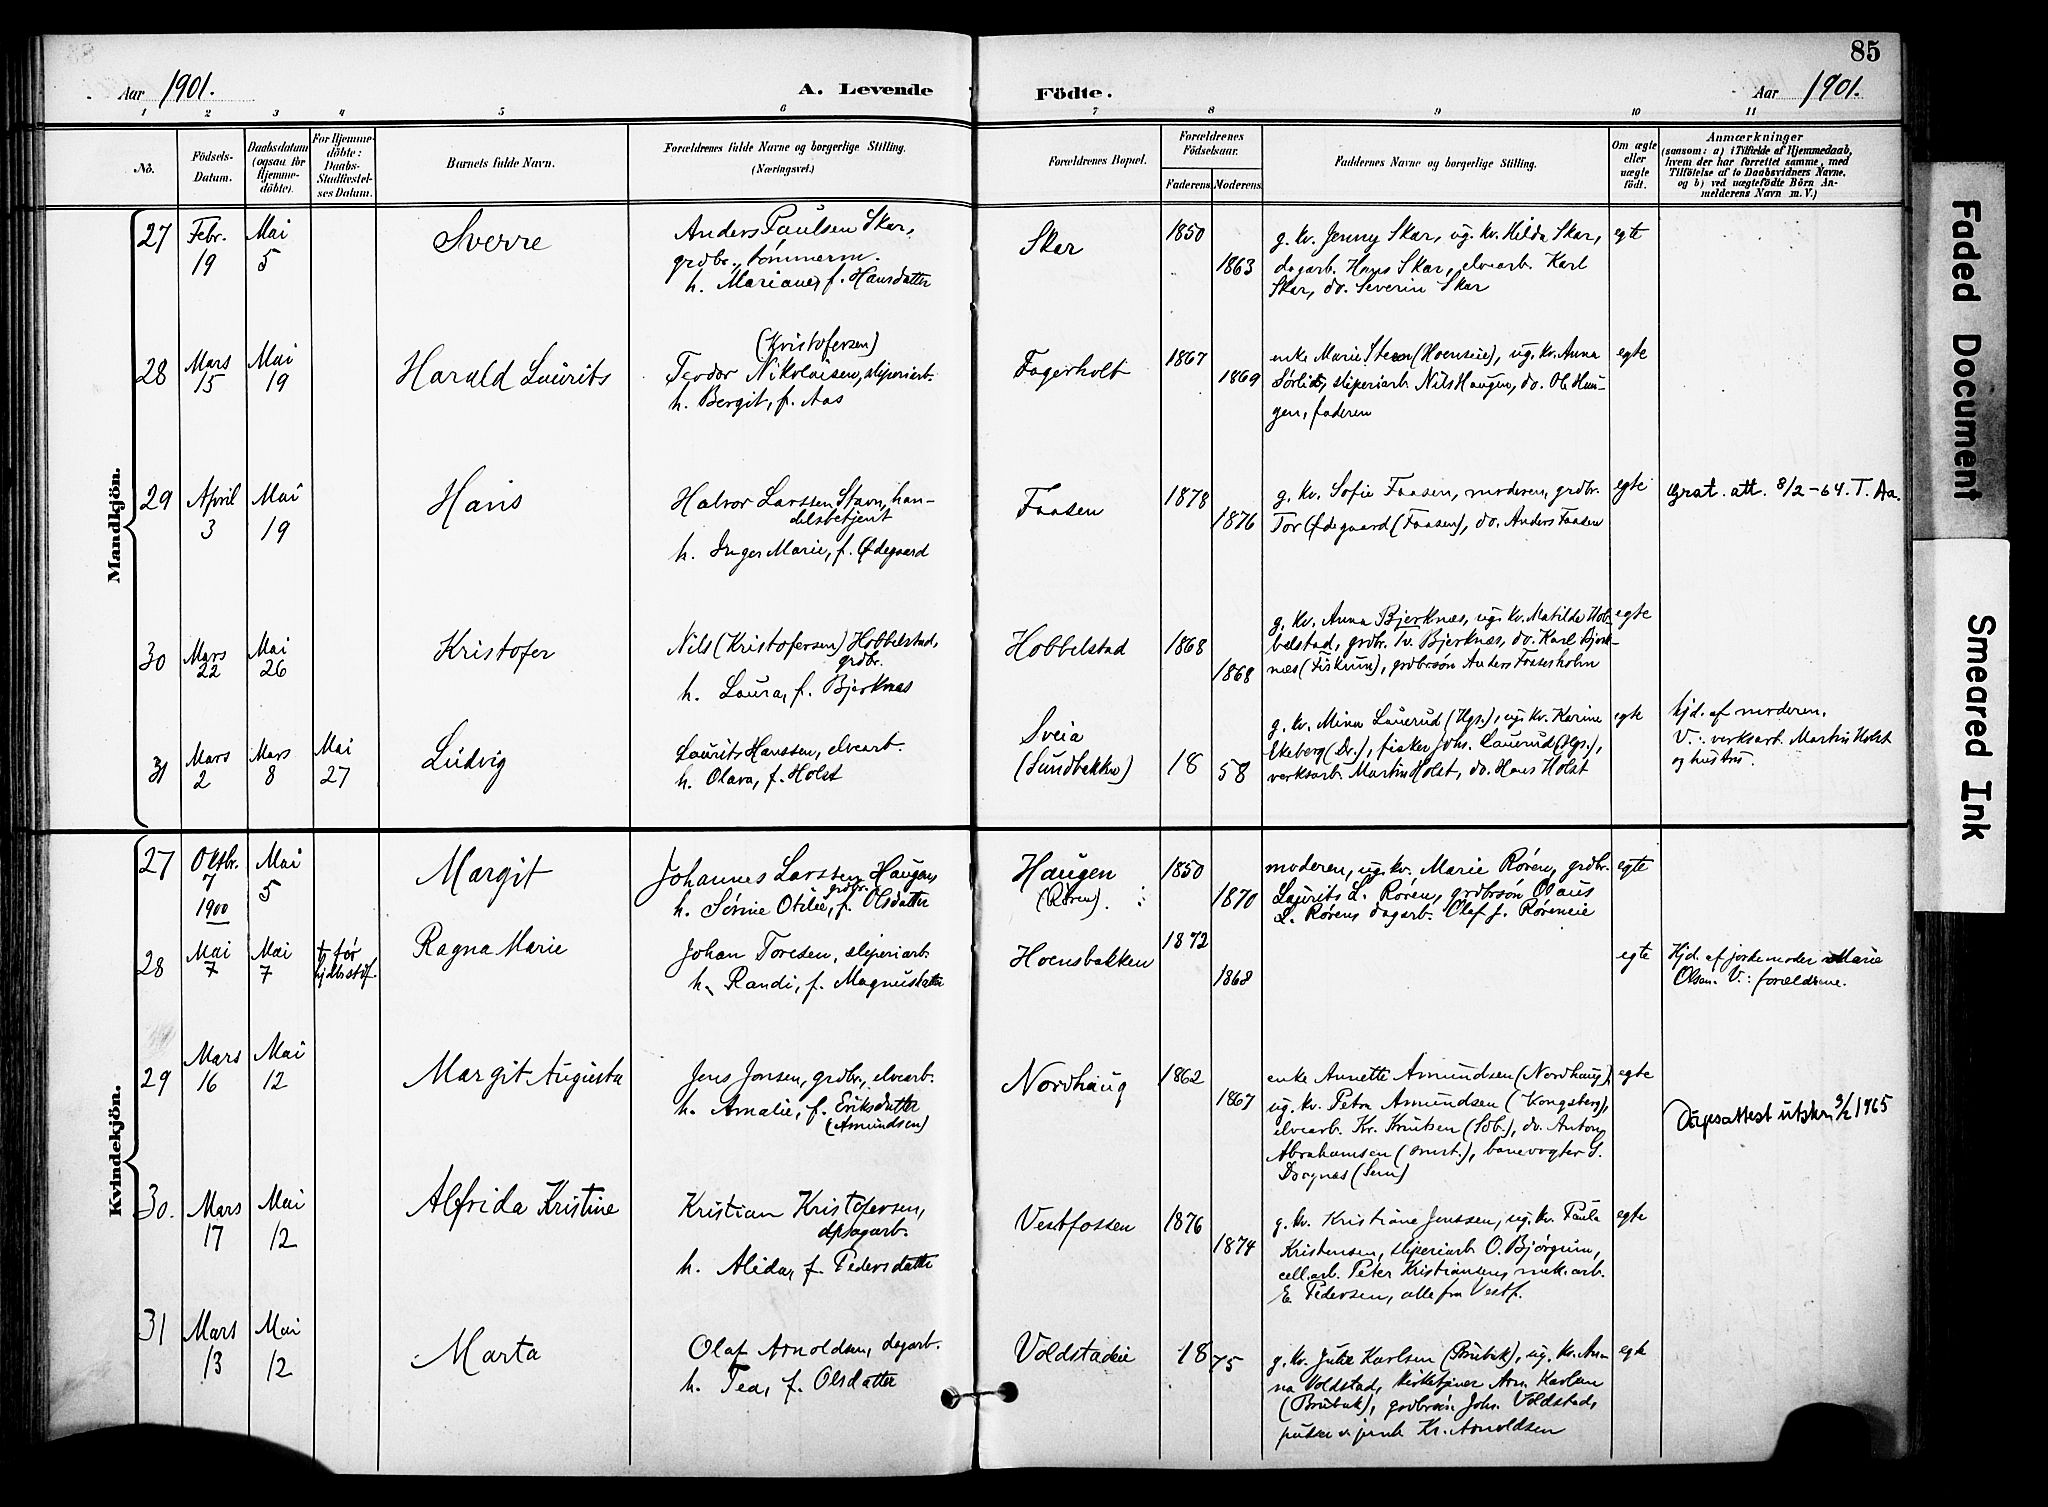 85
Aar 1901.
A. Levende
Födte.
Aar 1901.
1 2 3 4 5 6 7 8 9 10 11
No.
Födsels-
Datum.
Daabsdatum
(ogsaa for
Hjemme-
döbte).
For Hjemme-
döbte:
Daabs-
Stadfæstel-
ses Datum.
Barnets fulde Navn.
Forældrenes fulde Navne og borgerlige Stilling.
(Næringsvei.)
Forældrenes Bopæl.
Forældrenes
Födselsaar.
Faderens.
Moderens.
Faddernes Navne og borgerlige Stilling.
Om ægte
eller
uægte
födt.
Anmærkninger
(saasom: a) i Tilfælde af Hjemmedaab,
hvem der har forrettet samme, med
Tilföielse af to Daabsvidners Navne,
og b) ved uægtefödte Börn An-
melderens Navn m. V.)
Mandkjön.
27
Febr.
19
Mai
5
Sverre
Anders Paulsen Skar,
grdbr., tømmerm.
h. Mariane, f. Hansdatter
Skar
1850
1863
g. kv. Jenny Skar, ug. kv. Hilda Skar,
dagarb. Hans Skar, elvearb. Karl
Skar, do. Severin Skar
egte
28
Mars
15
Mai
19
Harald Laurits
(Kristofersen)
Teodor Nikolaisen, sliperiarb.
h. Bergit, f. Aas
Fagerholt
1867
1869
enke Marie Steen (Hoenseie), ug. kv. Anna
Sørlie, sliperiarb. Nils Haugen, do. Ole Hau-
gen, faderen
egte
29
April
3
Mai
19
Hans
Halvor Larssen Stavn, han-
delsbetjent
h. Inger Marie, f. Ødegaard
Faasen
1878
1876
g. kv. Sofie Faasen, moderen, grdbr.
Tor Ødegaard (Faasen), do. Anders Faasen
egte
Grat. att. 8/2-64. T. Aa.
30
Mars
22
Mai
26
Kristofer
Nils (Kristofersen) Hobbelstad,
grdbr.
h. Laura, f. Bjerknæs
Hobbelstad
1868
1868
g. kv. Anna Bjerknæs, ug. kv. Matilde Hob-
belstad, grdbr. Iv. Bjerknæs, do. Karl Bjerk-
næs (Fiskum), grdbrsøn Anders Fossesholm
egte
31
Mars
2
Mars
8
Mai
27
Ludvig
Laurits Hanssen, elvearb.
h. Olava, f. Holst
Sveia
(Sundbakken)
18 58
g. kv. Mina Laurud (Hgs.), ug. kv. Karine
Ekeberg (Dr.), fisker Johs. Laurud (Hgs.),
verksarb. Martin Holst, do. Hans Holst
egte
hjd. af moderen.
V.: verksarb. Martin Holst
og hustru.
Kvindekjön.
27
Oktbr.
7
1900
Mai
5
Margit
Johannes Larssen Haugen,
grdbr.
h. Sørine Otilie, f. Olsdatter
Haugen
(Røren).
1850
1870
moderen, ug. kv. Marie Røren, grdbr.
Laurits L. Røren, grdbrsøn Olaus
L. Røren, dagarb. Olaf J. Røreneie
egte
28
Mai
7
Mai
7
† før
Ragna Marie
Johan Toresen, sliperiarb.
h. Randi, f. Magnusdatter
Hoensbakken
1872
1868
egte
Hjd. af jordemoder Marie
Olsen. V.: forældrene.
29
Mars
16
Mai
12
Margit Augusta
Jens Jensen, grdbr., elvearb.
h. Amalie, f. Eriksdatter
(Amundsen)
Nordhaug
1862
1867
enke Annette Amundsen (Nordhaug),
ug. kv. Petra Amundsen (Kongsberg),
elvearb. Kr. Knutsen (Sdb.), do. Anton
Abrahamsen, banevogter S.
Dognæs (Sem)
egte
Dåpsattest utskr. 3/2 1965
30.
Mars
17
Mai
12
Alfrida Kristine
Kristian Kristofersen,
dpsagarb.
h. Alida, f. Pedersdatter
Vestfossen
1876
1874
g. kv. Kristiane Jenssen, ug. kv. Paula
Kristensen, sliperiarb. O. Bjørgum,
cell.arb. Peter Kristiansen, mek. arb.
E. Pedersen, alle fra Vestf.
egte
31
Mars
13
Mai
12
Marta
Olaf Arnoldsen, dagarb.
h. Tea, f. Olsdatter
Voldstadeie
18 75
g. kv. Julie Karlsen (Brubak), ug. kv. An-
na Voldstad, kirketjener Arn. Karlsen
(Brubak), grdbrsøn Joh. Voldstad,
pudser v jernb. Kr. Arnoldsen
egte
Faded Document
Smeared Ink